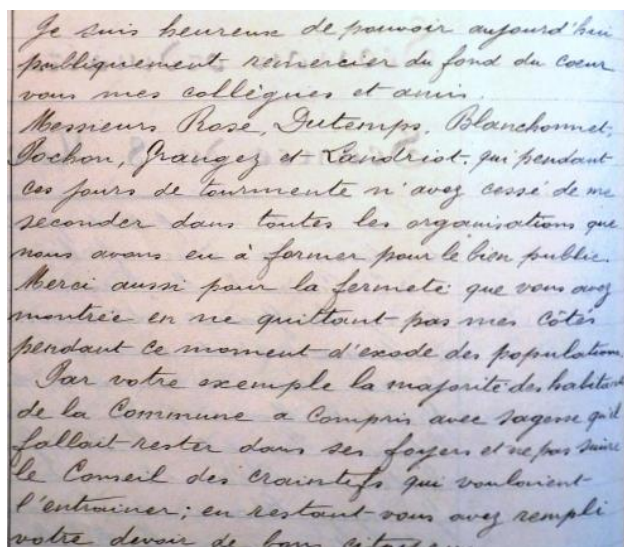 Je suis heureux de pouvoir aujourd'hui
publiquement remercier du fond du cœur
vous mes collègues et amis.
Messieurs Rose, Dutemps, Blanchonnet,
Pochon, Grangez et Landriot, qui pendant
ces jours de tourmente n'avez cessé de me
seconder dans toutes les organisations que
nous avons eu à former pour le bien public.
Merci aussi pour la fermeté que vous avez
montrée en ne quittant pas mes côtés
pendant ce moment d'exode des populations.
Par votre exemple la majorité des habitants
de la Commune a compris avec sagesse qu'il
fallait rester dans ses foyers et ne pas suivre
le Conseil des craintifs qui voulaient
l'entrainer; en restant vous avez rempli
votre devoir de bons citoyens